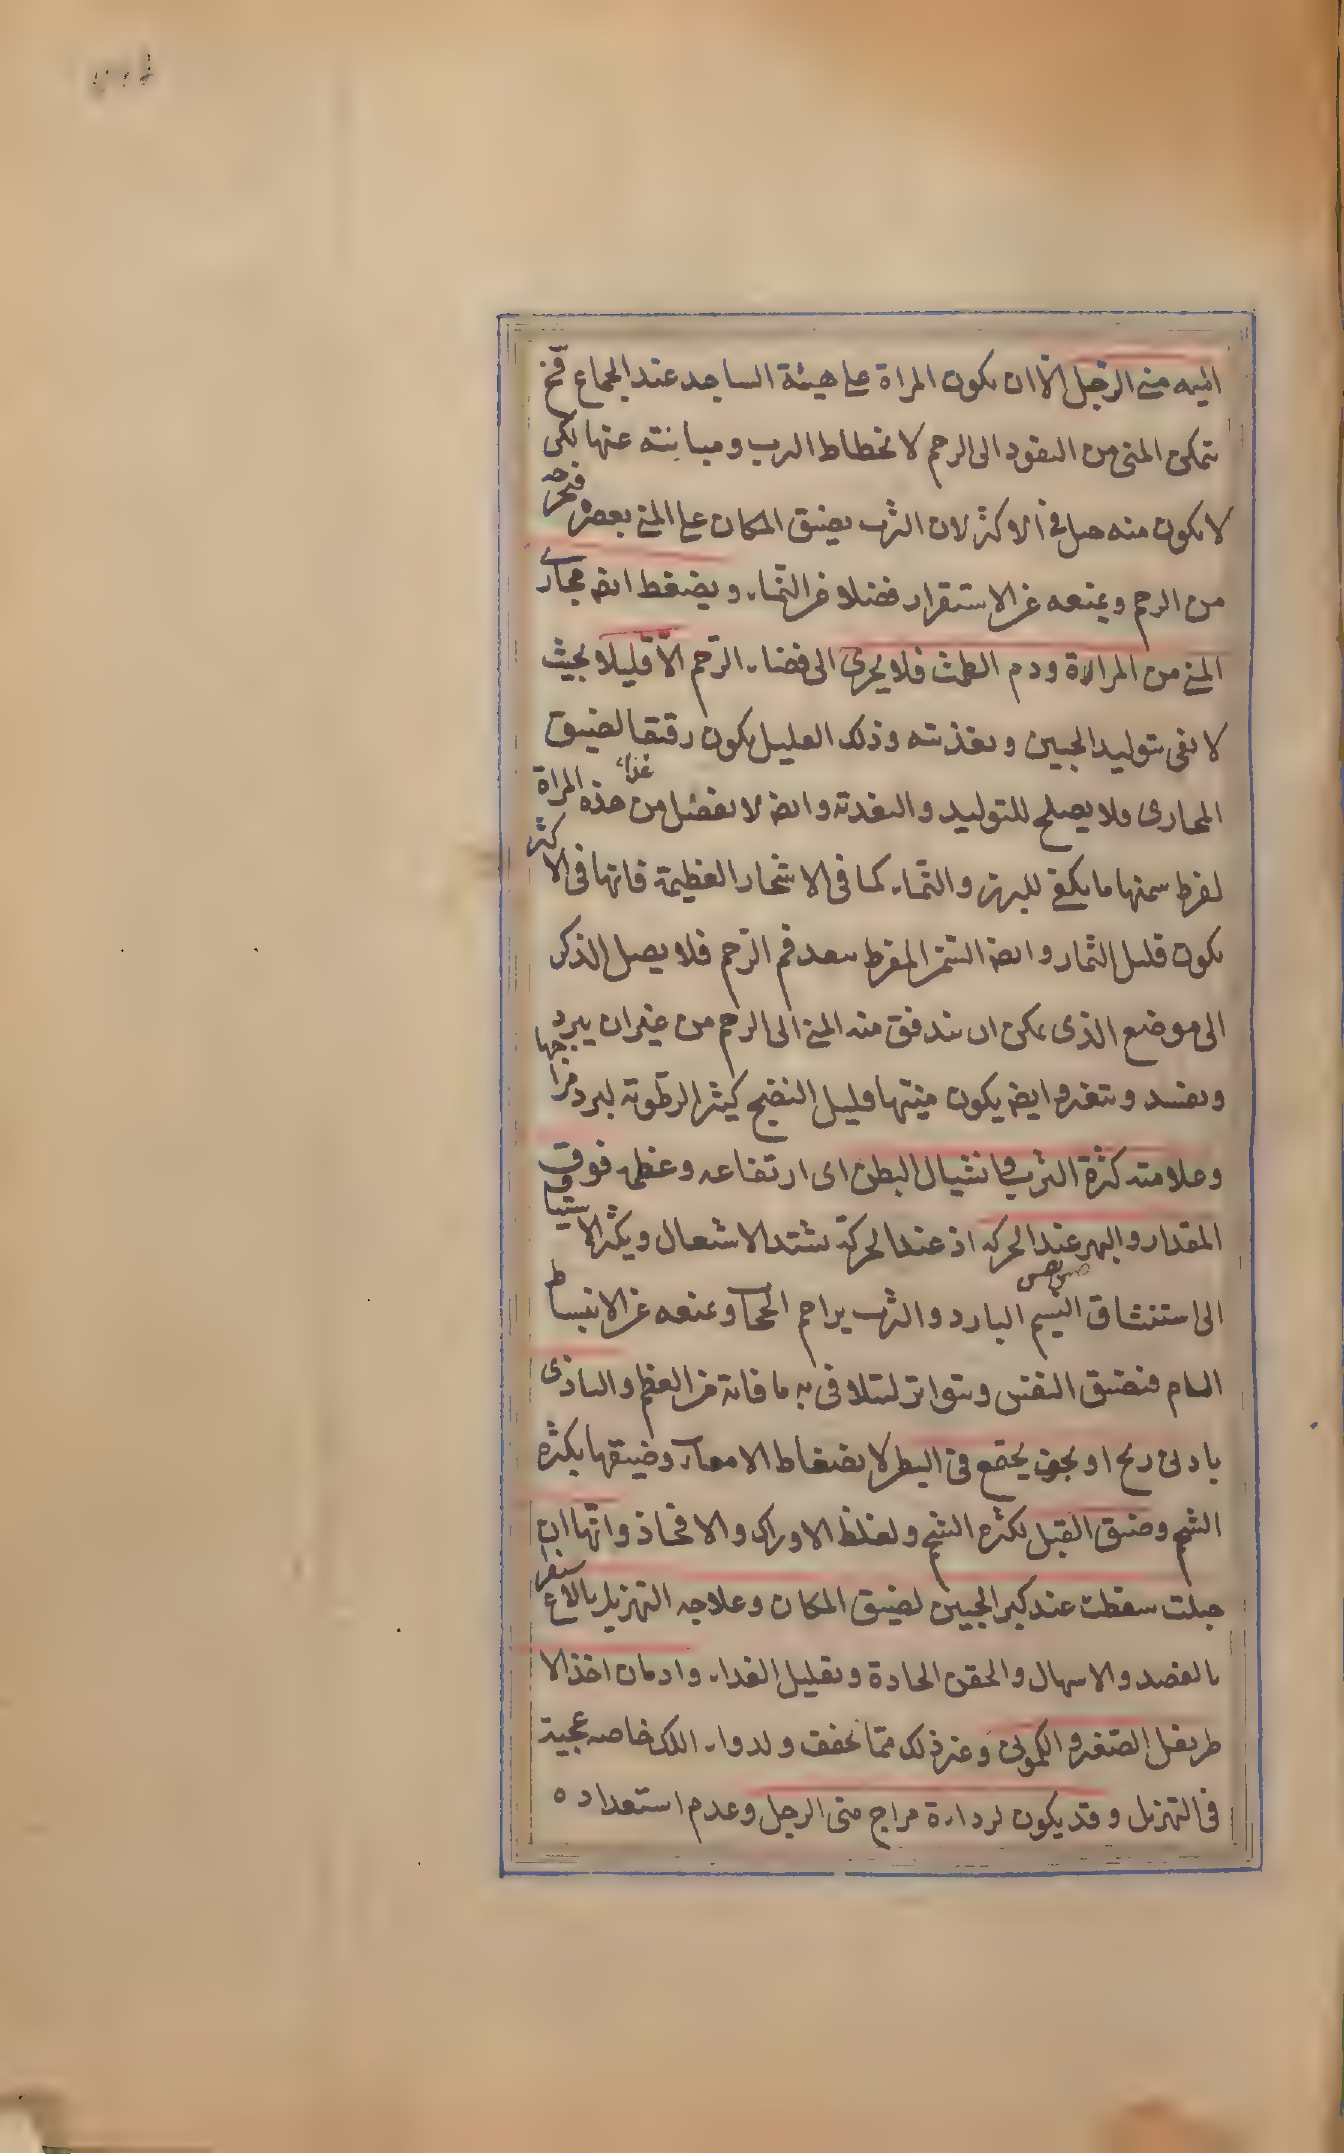 اليه مني الرجل الا ان يكون المراة على هيئة الساجد عند الجماع فح
يتمكن المنى من النفوذ الى الرحم لانحطاط الثرب ومباينته عنها لكن
لا يكون منه حبل في الاكثر لان الثرب يضيق المكان على المني بعصره فيخرجه
من الرحم ويمنعه عن الاستقرار فضلا عن النماء ويضغط ايضا مجارى
المني من المراة ودم الطمث فلا يجرى الى فضاء الرحم الا قليلا بحيث
لا يفى بتوليد الجنين وتغذيته وذلك القليل يكون رقيقا لضيق
المجارى فلا يصلح للتوليد والتغذية وايضا لا يفضل من غذاء هذه المراة
لفرط سمنها ما يكفي للبزر والنماء كما فى الاشجار العظيمة فانها فى الاكثر
يكون قليل الثمار وايضا السمن المفرط يبعد فم الرحم فلا يصل الذكر
الى موضع الذى يمكن ان يندفق منه المني الى الرحم من غير ان يبرد
ويفسد ويتغير وايضا يكون منيتها قليل النضج كثير الرطوبة لبرد مزاجها
وعلامته كثرة الثرب وانشيال البطن اى ارتفاعه وعظمه فوق
المقدار والبهر عند الحركة اذ عند الحركة يشتد الاشتعال ويكثر الاشتياق
الى استنشاق النسيم البارد والثرب يزاحم الحجاب ويمنعه عن الانبساط
التام فيضيق النفس ويتواتر ليتلافى به ما فاته من العظم والتاذى
بادنى ريح او نجو يجتمع فى البطن لانضغاط الامعاء وضيقها بكثرة
الشحم وضيق القبل لكثرة الشحم ولغلظ الاوراك والافخاذ وانها ان
حبلت سقطت عند كبر الجنين لضيق المكان وعلاجه التهزيل بالاستفراغ
بالفصد والاسهال والحقن الحادة وتقليل الغذاء وادمان اخذ الا
طريفل الصغير والكمونى وغير ذلك مما يجفف ولدواء اللك خاصه عجيبة
فى التهزيل وقد يكون لرداءة مزاج منى الرجل وعدم استعداده